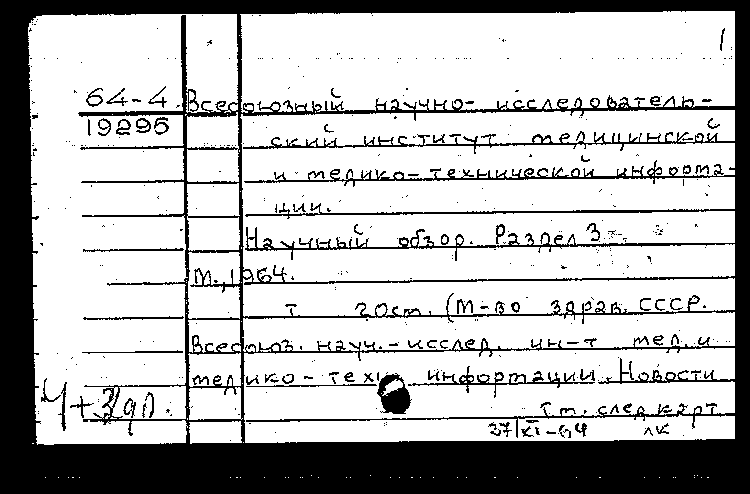 1
64-4 Всесоюзный научно-исследователь-
19295 ский институт медицинской
и медико-технической информа-
ции.
Научный обзор. Раздел 3
М., 1964.
т 20см. (М-во здрав. СССР.
Всесоюз. науч.-исслед. ин-т мед. и
медико-техн информации. Новости
См. след карт
27/XI-64 лк